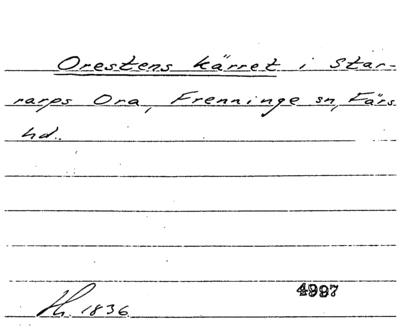 Orestens kärret i Star-
rarps Ora, Frenninge sn, Färs
hd.
4997
Th. 1836